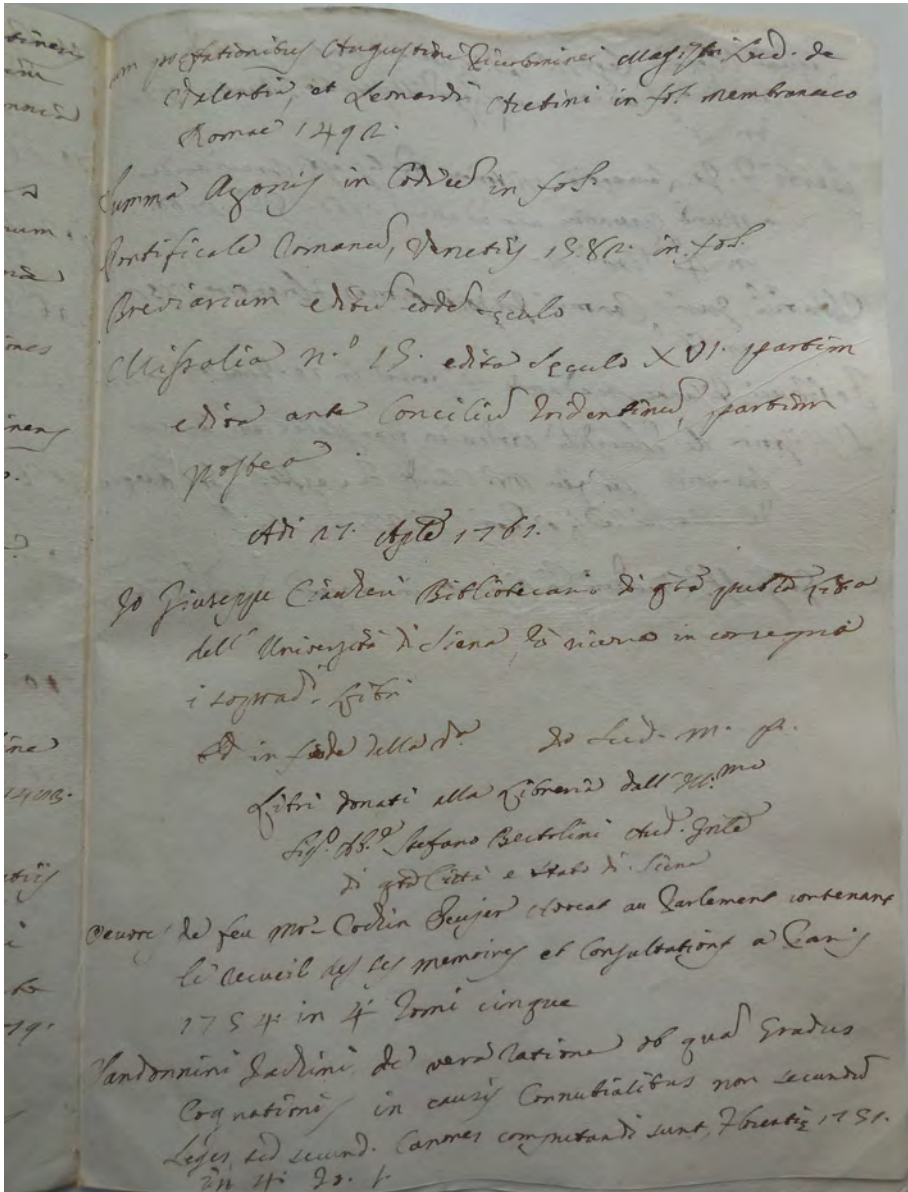 cum praefationibus Augustini Piccolominei Magistri Lud. de
Valentia, et Leonardi Aretini in fol. membranaceo
Romae 1492.
Summa Agonis in Codice in fol.
Pontificale Romanu, Venetijs 1582. in fol.
Breviarium editu eode seculo
Missalia n.° 15. edita Seculo XVI. partim
edita ante Conciliu Tridentinu, partim
postea.
Adi 27. Aple 1761.
Io Giuseppe Ciaccheri Bibliotecario di qta pubbca Libra
dell' Università di Siena, ò ricevo in consegna
i soprad.i Libri
Ed in fede della da. Io Sud. m. p.
Libri donati alla Libreria dall' Ill.mo
Sig.e Ab.e Stefano Bertolini Aud. Gnle
di qta Città e Stato di Siena
Oeuvres de feu Mr. Cochin Ecujer Avocat au Parlement contenant
le recueil des ses memoires et Consultations a Paris
1754. in 4. Tomi cinque
Vandonnini Jachini de vera ratione ob qua Gradus
Cognationis in causis Connubialibus non secundu
Leges, sed secund. Canones computandi sunt, Florentiae 1751.
in 4. To. 1.